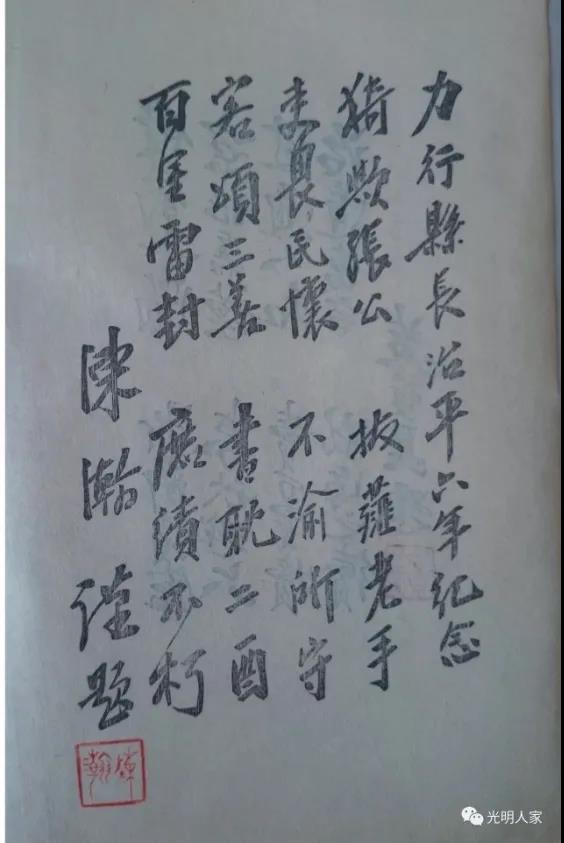 力行縣長治平六年紀念
猗歟張公 拔薤老手
吏畏民懷 不渝所守
客頌三善 書耽二酉
百里雷封 庶績不朽
陳瀚謹題
陳瀚
光明人家